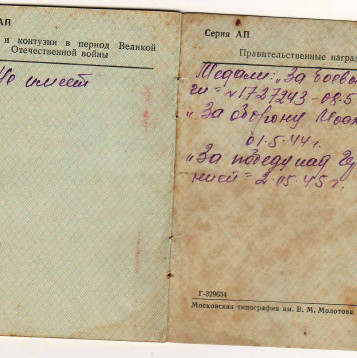 АП
и контузии в период Великой
Отечественной войны
Не имеет
Серия АП
Правительственные наград
Медали: „За боевы
№1727243-08.5
„За оборону Моск
01.5.44г.
„За победу над Гер
нией"
05.45г.
Г-829654
Московская типография им. В. М. Молотова